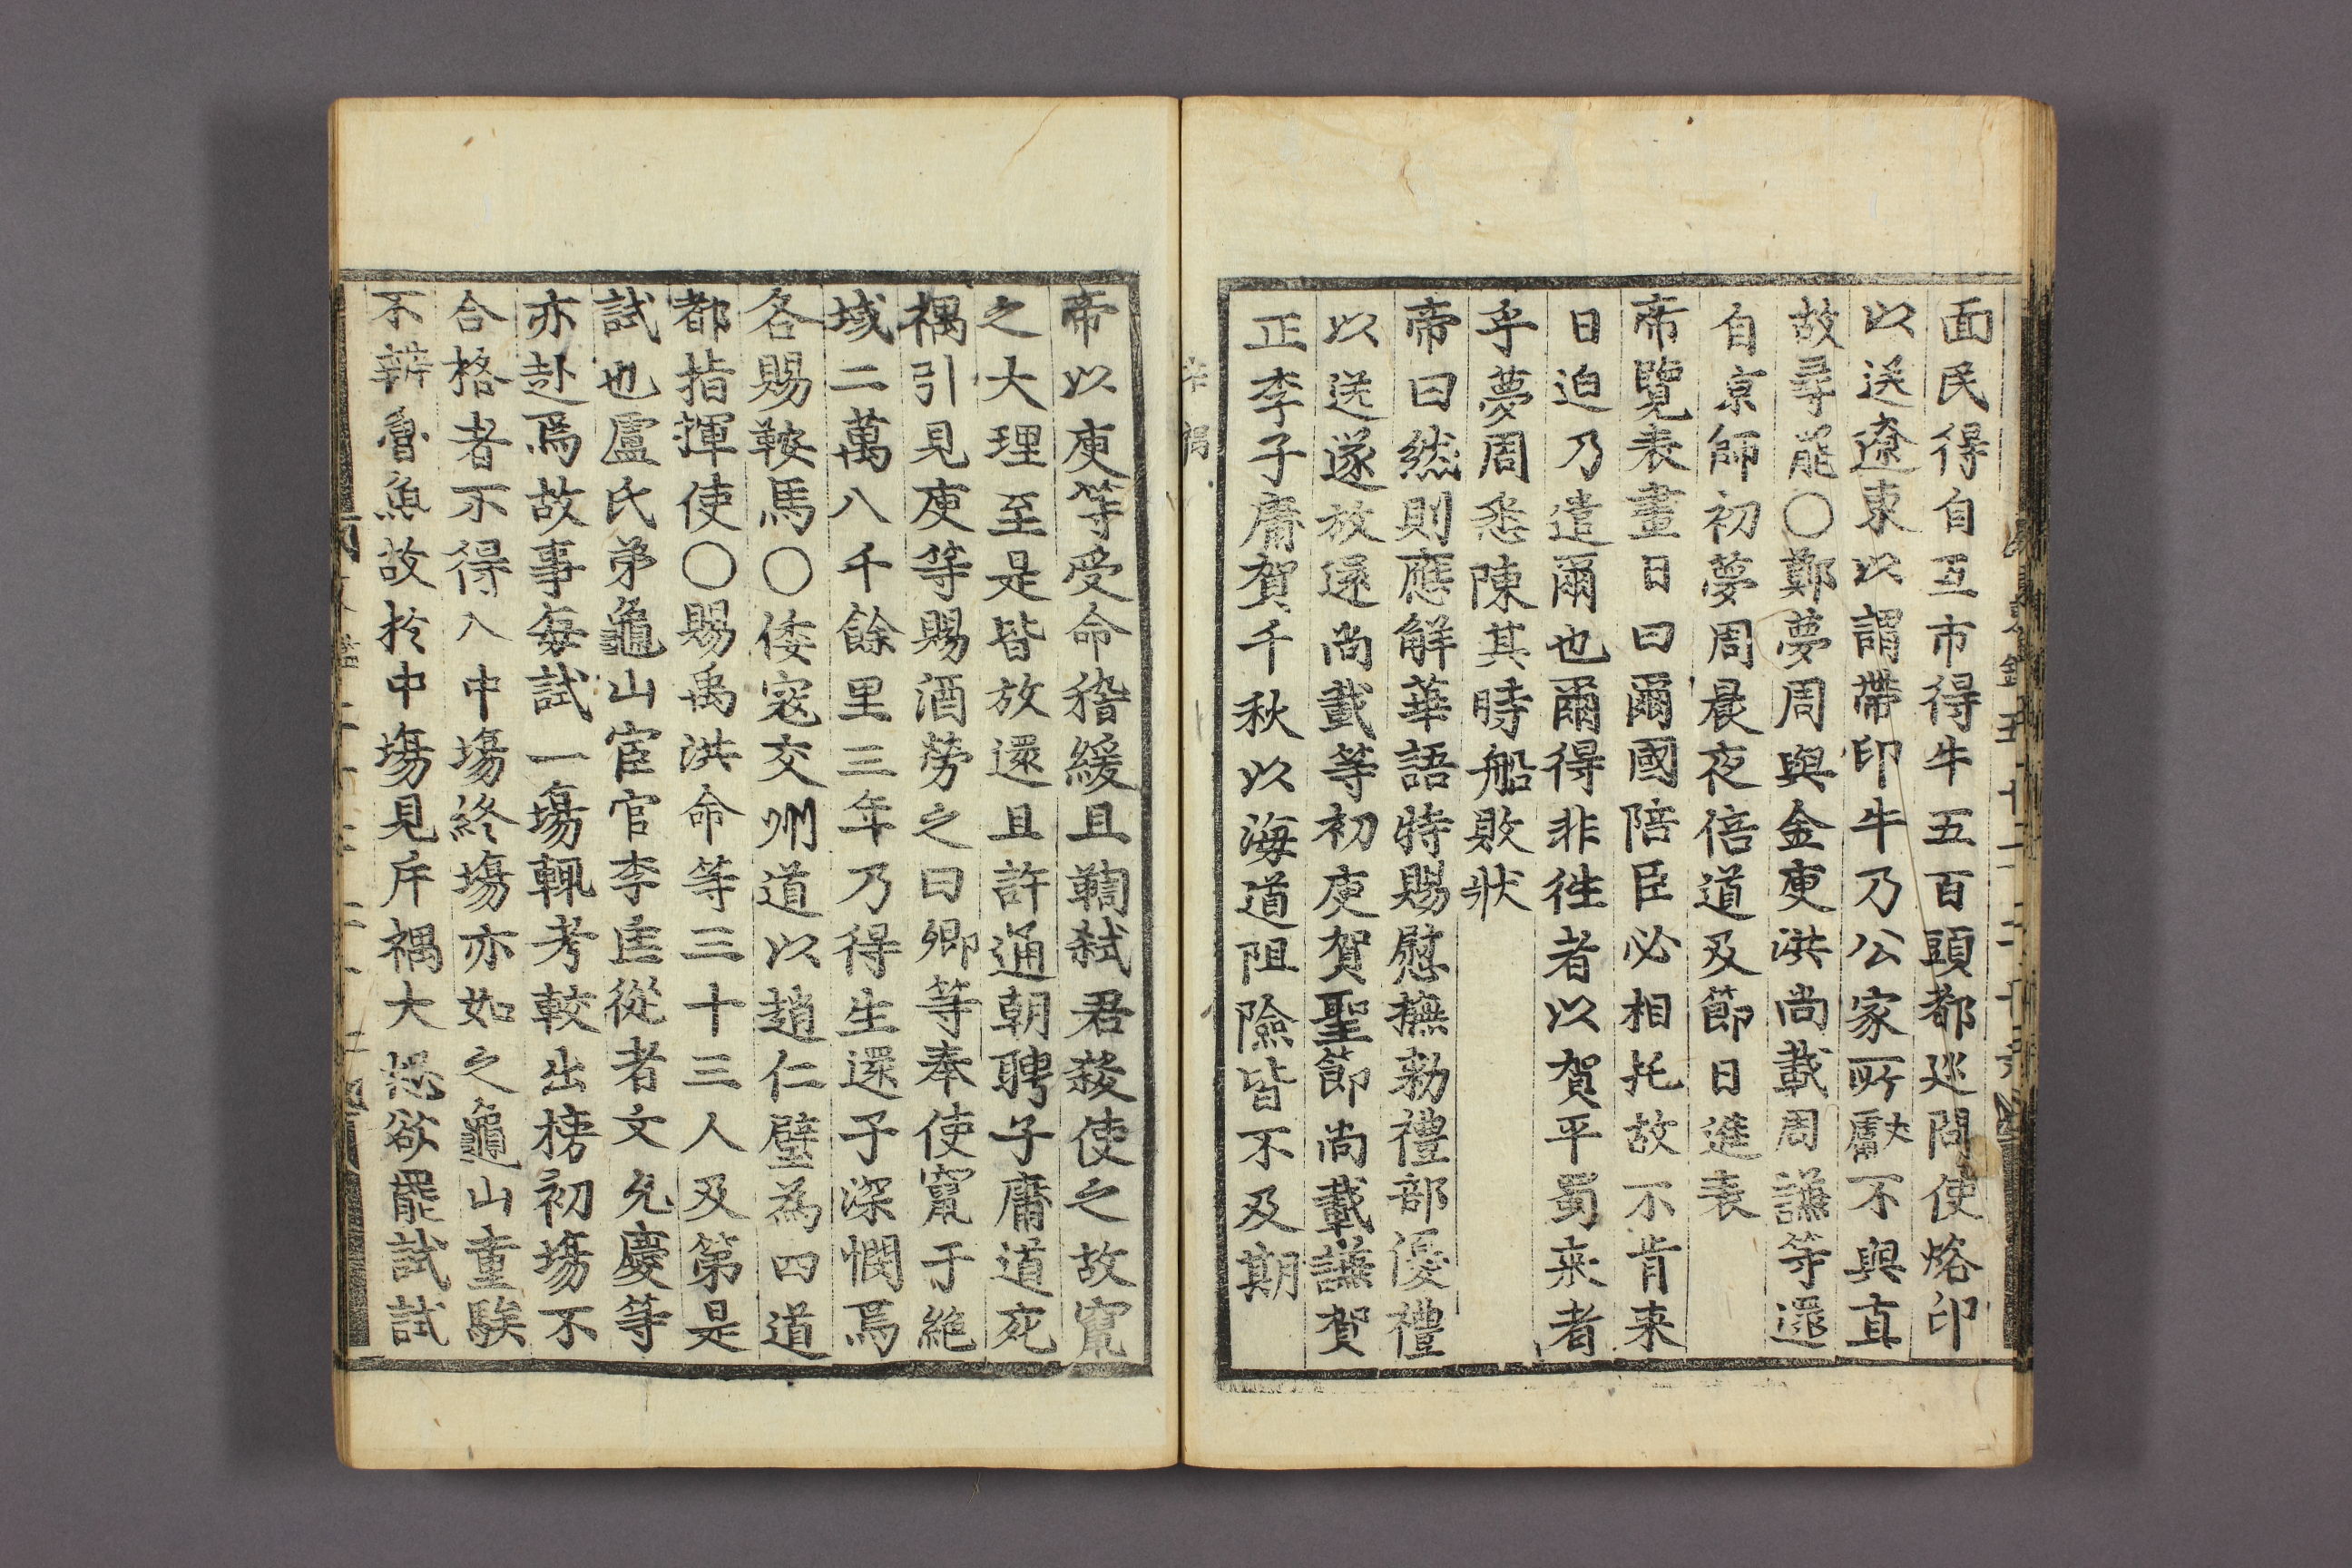 面民得自互市得牛五百頭都巡問使烙印
以送遼東以謂帶印牛乃公家所獻不與直
故尋罷○鄭夢周與金庾洪尚載周謙等還
自京師初夢周晨夜倍道及節日進表
帝覽表畫日曰爾國陪臣必相托故不肯来
日迫乃遣爾也爾得非徃者以賀平蜀来者
乎夢周悉陳其時船敗狀
帝曰然則應解華語特賜慰撫勑禮部優禮
以送遂放還尚載等初庾賀聖節尚載謙賀
正李子庸賀千秋以海道阻險皆不及期
辛禑
帝以庾等受命稽緩且鞫弑君殺使之故竄
之大理至是皆放還且許通朝聘子庸道死
禑引見庾等賜酒勞之曰卿等奉使竄于絶
域二萬八千餘里三年乃得生還予深憫焉
各賜鞍馬○倭寇交州道以趙仁璧為四道
都指揮使○賜禹洪命等三十三人及第是
試也盧氏弟龜山宦官李匡從者文允慶等
亦赴焉故事每試一塲輒考較出榜初塲不
合格者不得入中塲終塲亦如之龜山童騃
不辨魯魚故於中塲見斥禑大怒欲罷試試